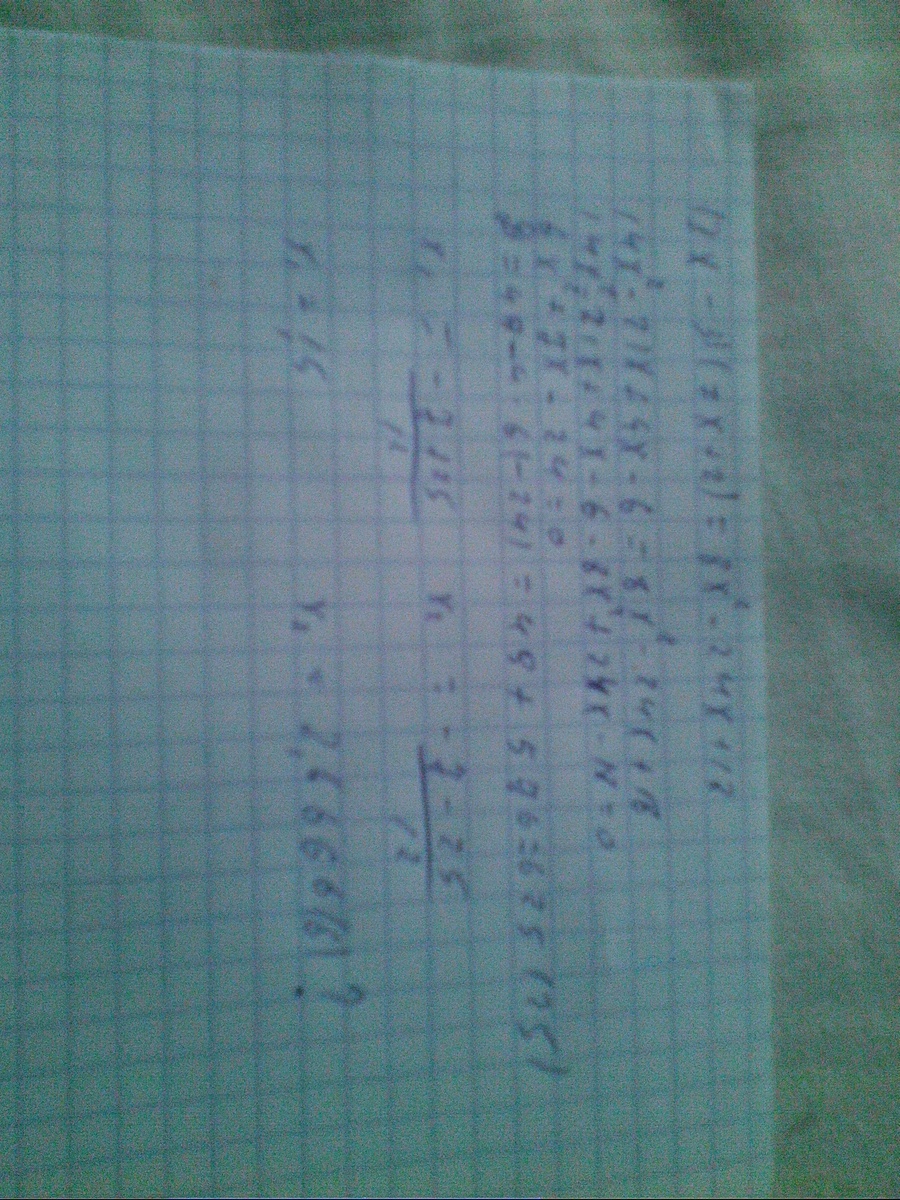 = 8x² - 24x + 18
14x² - 21x + 4x - 6 = 8x² - 24x + 18
14x² - 21x + 4x - 6 - 8x² + 24x - 18 = 0
6x² + 7x - 24 = 0
D = 49 - 4 · 6(-24) = 49 + 576 = 625 (25)
x₁ = -7+25/12 x₂ = -7-25/12
x₁ = 1,5 x₂ = 2,6666(6) ?